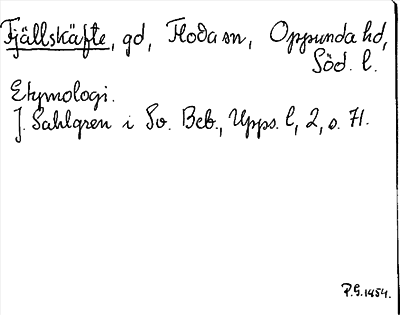 Fjällskäfte, gd, Floda sn, Oppunda hd,
Söd. l.
Etymologi.
J. Sahlgren i Sv. Beb., Upps. l, 2, s. 71.
P.G. 1454.